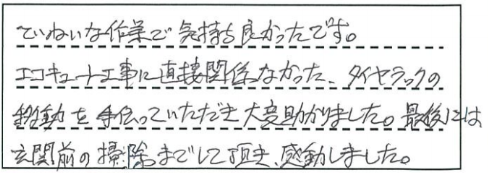 ていねいな作業で気持ち良かったです。
エコキュート工事に直接関係なかった、タイヤラックの
移動を手伝っていただき大変助かりました。最後には
玄関前の掃除までして頂き、感動しました。